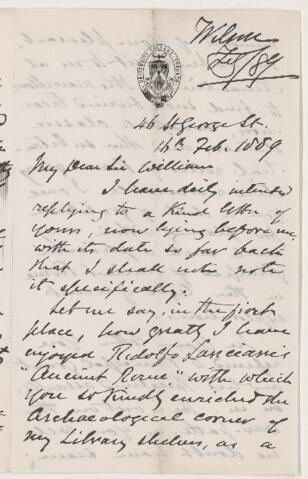 Wilson
Feb/89
UNIVERSITY COLLEGE TORONTO
46 St George St.
16th Feb. 1889
My Dear Sir William
I have daily intended
replying to a kind letter of
yours, now lying before me
with its date so far back
that I shall not note
it specifically.
Let me say, in the first
place, how greatly I have
enjoyed Rodolfo Lanciani's
"Ancient Rome" with which
you so kindly enriched the
Archaeological corner of
my Library shelves, as a